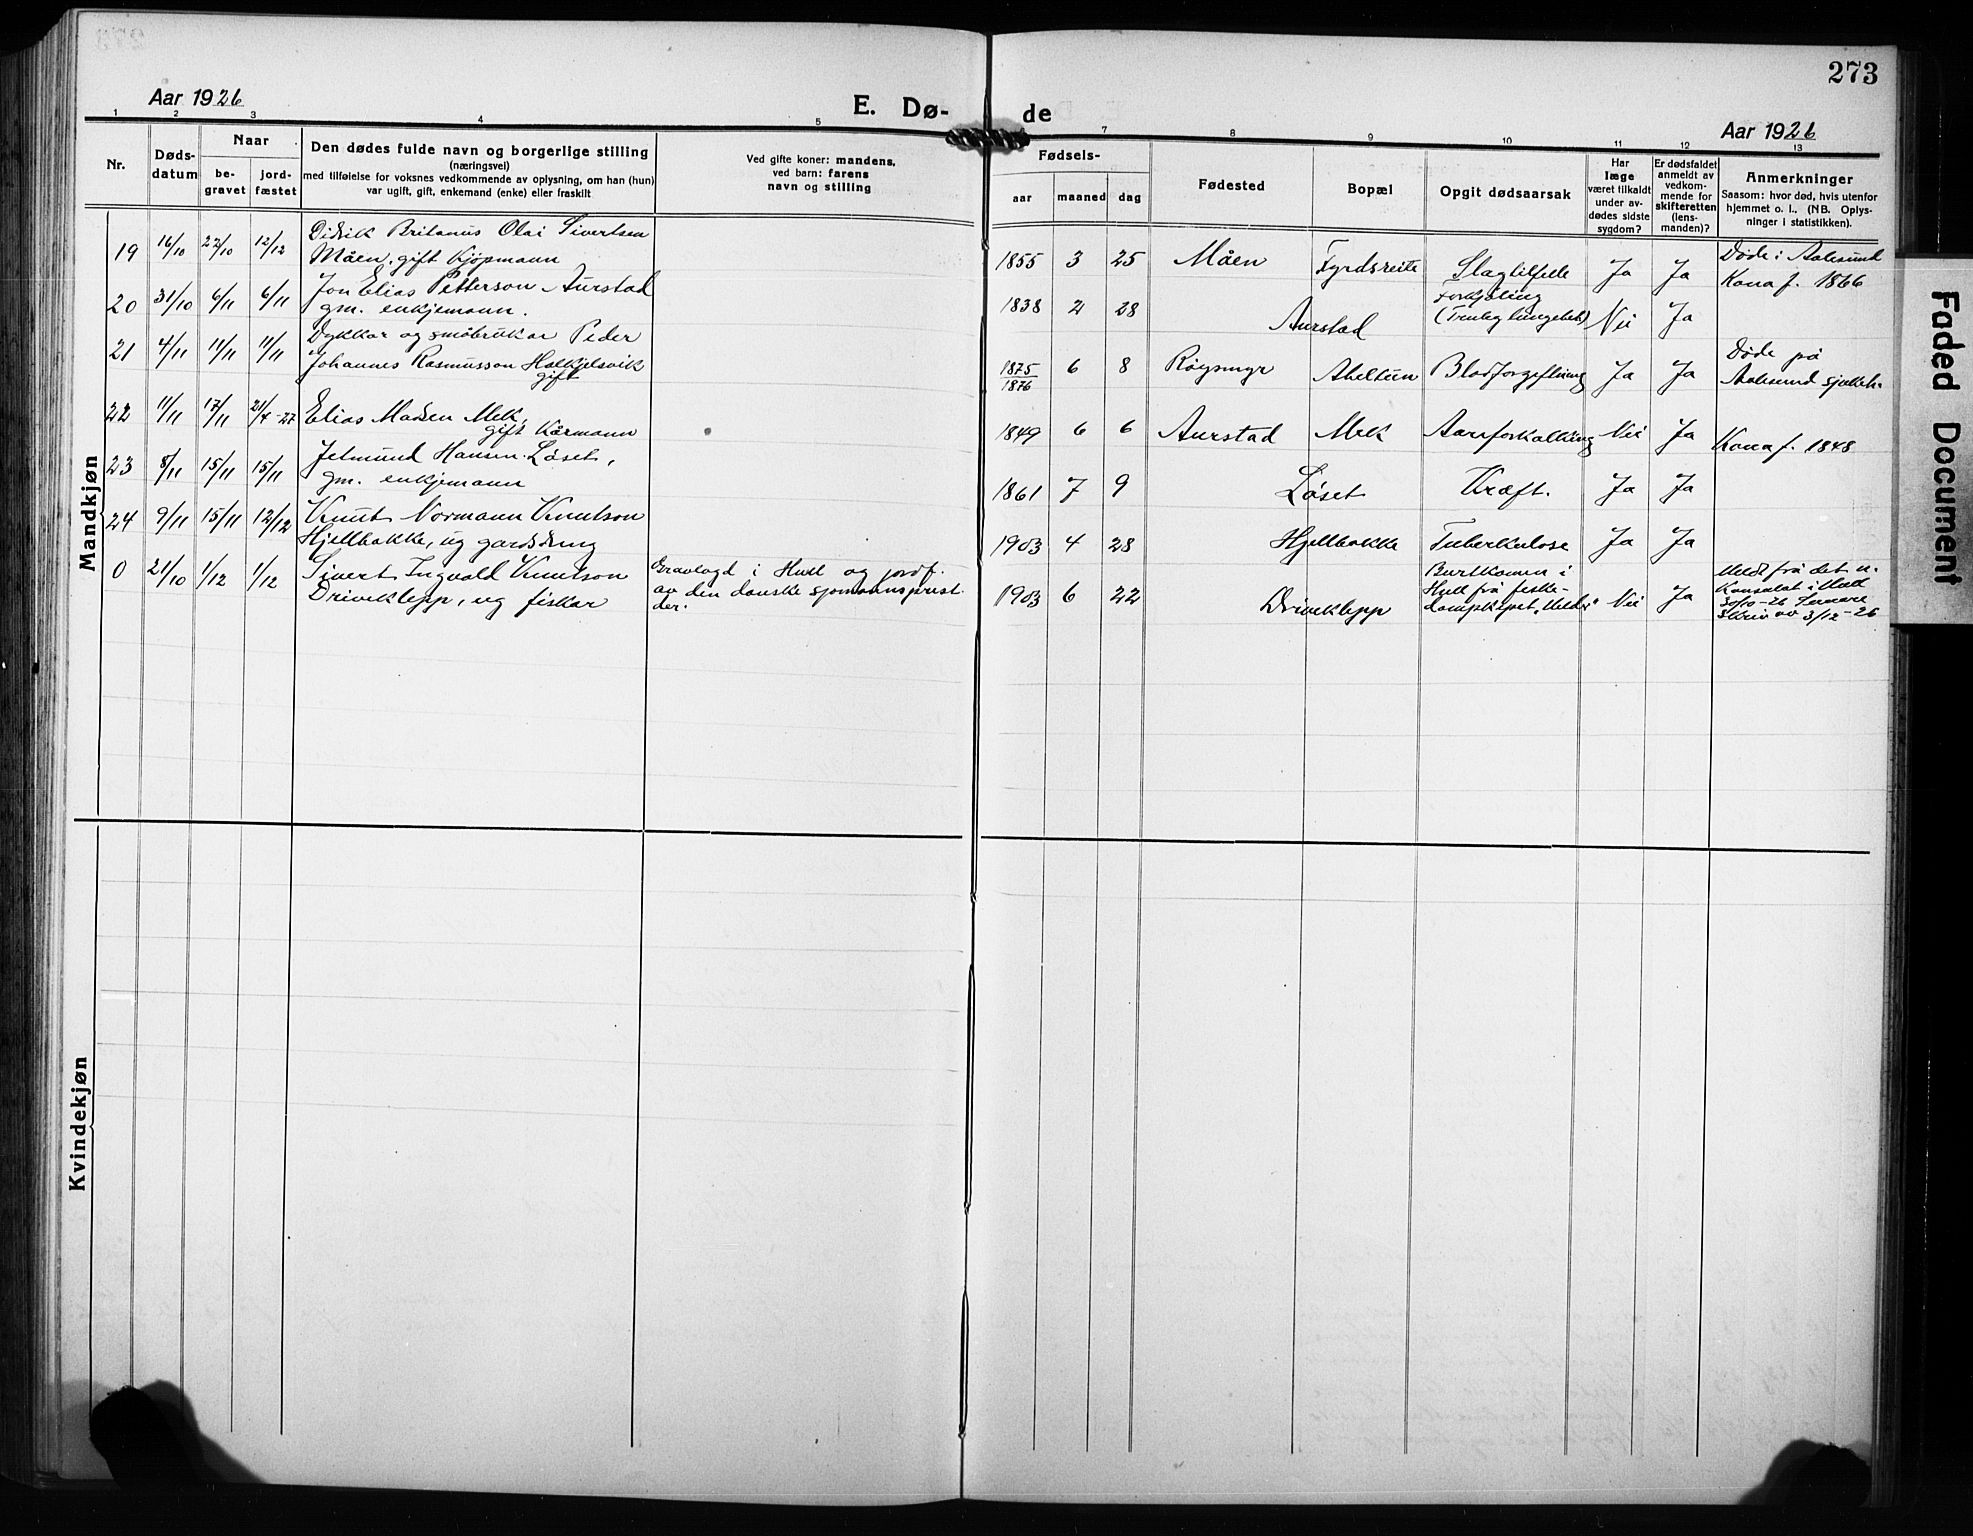 273
Aar 1926
E. Dø- de
Aar 1926
1 2 3 4 5 7 8 9 10 11 12 13
Nr.
Døds-
datum
Naar
be-
gravet
jord-
fæstet
Den dødes fulde navn og borgerlige stilling
(næringsvei)
med tilføielse for voksnes vedkommende av oplysning, om han (hun)
var ugift, gift, enkemand (enke) eller fraskilt
Ved gifte koner: mandens,
ved barn: farens
navn og stilling
Fødsels-
aar maaned dag
Fødested
Bopæl
Opgit dødsaarsak
Har
læge
været tilkaldt
under av-
dødes sidste
sygdom?
Er dødsfaldet
anmeldt av
vedkom-
mende for
skifteretten
(lens-
manden)?
Anmerkninger
Saasom: hvor død, hvis utenfor
hjemmet o. l., (NB. Oplys-
ninger i statistikken).
Mandkjøn
19 16/10 22/10 12/12 Didrik Britanus Olai Sivertsen
Måen, gift Kjøpmann
1855 3 25 Måen Fyrdsreite Slagtilfelle Ja Ja Døde i Aalesund
Kona f. 1866
20 31/10 6/11 6/11 Jon Elias Petterson Aurstad
gm. enkjemann.
1838 2 28 Aurstad Forkjøling
(Truleg lungebet) Nei Ja
21 4/11 11/11 11/11 Dykkar og småbrukar Peder
Johannes Rasmusson Halkjelsvik
gift
1875
1876 6 8 Røysmyr Aheltun Blodforgiftning Ja Ja Døde på
Aalesund sjukeh.
22 11/11 17/11 21/4-27 Elias Madsen Mek,
gift Kårmann
1849 6 6 Aurstad Mek Aareforkalking Nei Ja Kona f. 1848
23 8/11 15/11 15/11 Jetmund Hansen Løset,
gm. enkjemann
1861 7 9 Løset Kræft. Ja Ja
24 9/11 15/11 12/12 Knut Normann Knutson
Hjellbakke, ug gardsdreng
1903 4 28 Hjellbakke Tuberkulose Ja Ja
0 21/10 1/12 1/12 Sivert Ingvald Knutson
Driveklepp, ug fiskar
Gravlagd i Hull og jordf.
av den danske sjømannsprest
der.
1903 6 22 Driveklepp Burtkomen i
Hull frå fiske-
dampskipet Nei Ja Meldt frå det n.
Konsulat i Hull
30/10-26
3/12-26
Kvindekjøn
Faded Document